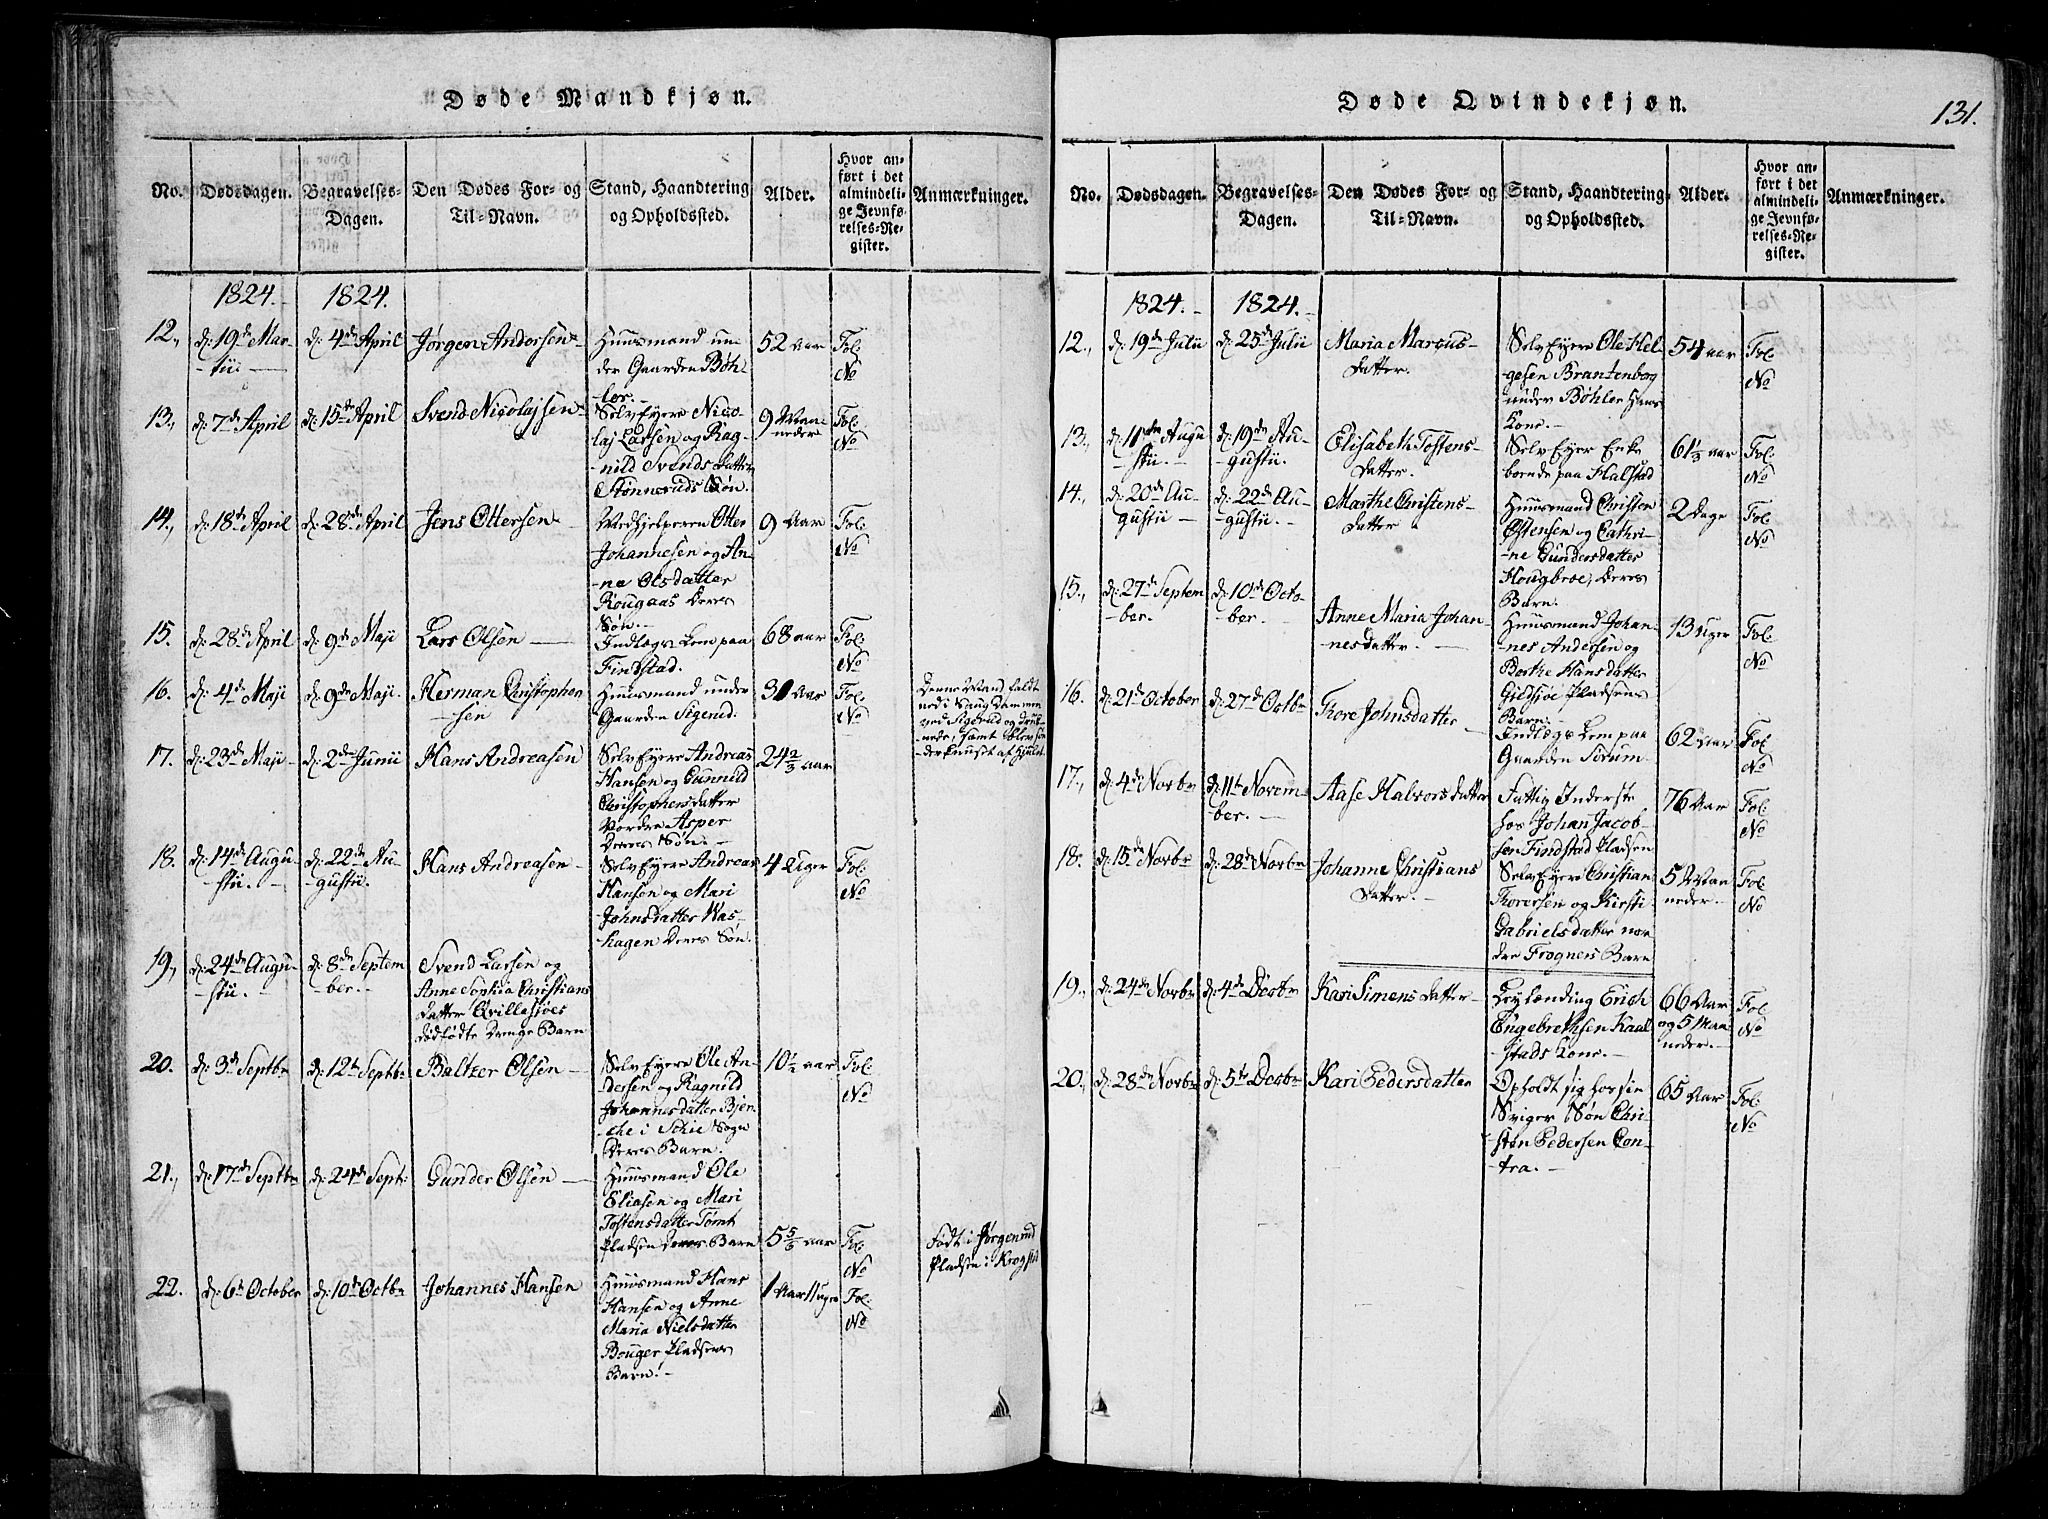 Døde Mandkjøn.
No.
Dødsdagen.
Begravelses-
Dagen.
Den Dødes For- og
Til-Navn.
Stand, Haandtering
og Opholdssted.
Alder.
Hvor an-
ført i det
almindeli-
ge Jevnfø-
relses-Re-
gister.
Anmærkninger.
1824.-
1824.
12.,
d: 19de Mar-
-tii:
d: 4de April
Jørgen Andersen
Huusmand un-
der Gaarden Bøh-
ler.-
52 Aar
Fol:
No
13.,
d: 7de April
d: 15de April
Svend Nicolajsen
SelvEyere Nico-
laj Larsen og Rag-
-nild Svends Datter
Stønneruds Søn.
9 Maa-
neder
Fol:
No
14.,
d: 18de April
d: 28de April
Jens Ottersen
Medhjelperen Otter
Johannesen og An-
-ne Olsdatter
Rougaas Deres
Søn.-
9 Aar
Fol:
No
15.
d: 28de April
d: 9de Maji
Lars Olsen
Indlægs Lem paa
Findstad.
68 aar
Fol:
No
16.
d: 4de Maji
d: 9de Maji.
Herman Christopher
-sen
Huusmand under
Gaarden Sigerud.
31 Aar
Fol:
No
Denne Mand faldt
ned i Saug Dammen
ved Sigerud og druk-
nede, samt blev søn-
-derknuset af Hjulet
17.
d: 23de Maji
d: 2de Junii
Hans Andreasen
SelvEyere Andreas
Hansen og Gunnild
Christophersdatter
Nordre Asper
Deres Søn.-
24 2/3 aar
18.
d: 14de Augu-
-stii.
d: 22de Au-
gustii.
Hans Andreasen
SelvEyere Andreas
Hansen og Mari
Johnsdatter Was-
hagen Deres Søn.
4 Uger
Fol:
No
19.,
d: 24de Augu-
-stii.
d: 8de Septem
ber.
Svend Larsen og
Anne Sophia Christians
Datter Qvillesjøes
dødfødte Drenge Barn
20.
d: 3de Septbr
d: 12te Septbr
Baltzer Olsen
SelvEyere Ole An-
dersen og Ragnild
Johannesdatter Bjer-
che i Schie Sogn
Deres Barn.
10 1/2 aar
Fol:
No
21.,
d: 17de Septbr
d: 24de Sept:
Gunder Olsen
Huusmand Ole
Eliasen og Mari
Tostensdatter Tømt
Pladsen Deres Barn
5 5/6 aar
Fol:
No
Født i Jørgenrud
Pladsen i Krogstad
22.
d: 6te October
d: 10de Octbr
Johannes Hansen
Huusmand Hans
Hansen og Anne
Maria Nielsdatter
Bouger Pladsens
Barn.-
1 Aar 11 uger
Fol:
No
Døde Qvindekjøn.
131.
No.
Dødsdagen.
Begravelses-
Dagen.
Den Dødes For- og
Til-Navn.
Stand, Haandtering
og Opholdssted.
Alder.
Hvor an-
ført i det
almindeli-
ge Jevnfø-
relses-Re-
gister.
Anmærkninger.
1824.-
1824.-
12.,
d: 19de Julii
d: 25de Julii
Maria Marcus-
Datter.
SelvEyere Ole Hel-
gesen Brantenborg
under Bøhler Hans
Kone.-
54 aar
Fol:
No
13.,
d: 11te Augu
stii.
d: 19de Au-
-gustii.
Elisabeth Tostens-
Datter.
SelvEyer Enke
boende paa Halstad
61 1/3 aar
Fol:
No
14.,
d: 20de Au-
gustii
d: 22de Au-
-gustii.
Marthe Christens-
Datter
Huusmand Christen
Østensen og Cathri-
-ne Gundersdatter
Hougbroe, Deres
Barn.
2 Dage
Fol:
No
15.,
d: 27de Septem
ber.
d: 10de Octo-
ber.
Anne Maria Johan-
nesdatter.
Huusmand Johan-
nes Andersen og
Berthe Hansdatter
Gildsjøe Pladsens
Barn.-
13 Uger
Fol:
No
16.
d: 21de October
d: 27de Octbr
Thore Johnsdatter
Indlægs Lem paa
Gaarden Sørum.
62 Aar
Fol:
No
17.,
d: 4de Novbr
d: 11te Novem-
ber.
Aase Halvors Datter
Fattig Inderste
hos Johan Jacob-
sen Findstad Pladsen
76 Aar
Fol:
No
18.
d: 15de Novbr
d: 28de Novbr
Johanne Christians
Datter.
SelvEyere Christian
Thoresen og Kirsti
Gabrielsdatter nor
dre Frogners Barn
5 Maa
neder.
Fol:
No
19.,
d: 24de Novbr
d: 4de Decbr
Kari Simens Datter
Leylænding Erich
Engebrethsen Kaal-
stads Kone.-
66 Aar
og 5 Maa
neder.
Fol:
No
20.,
d: 28de Novbr
d: 5te Decbr
Kari Pedersdatter
Opholdt sig hos sin
Sviger Søn Chri-
sten Pedersen Con-
-tra.-
65 Aar
Fol:
No